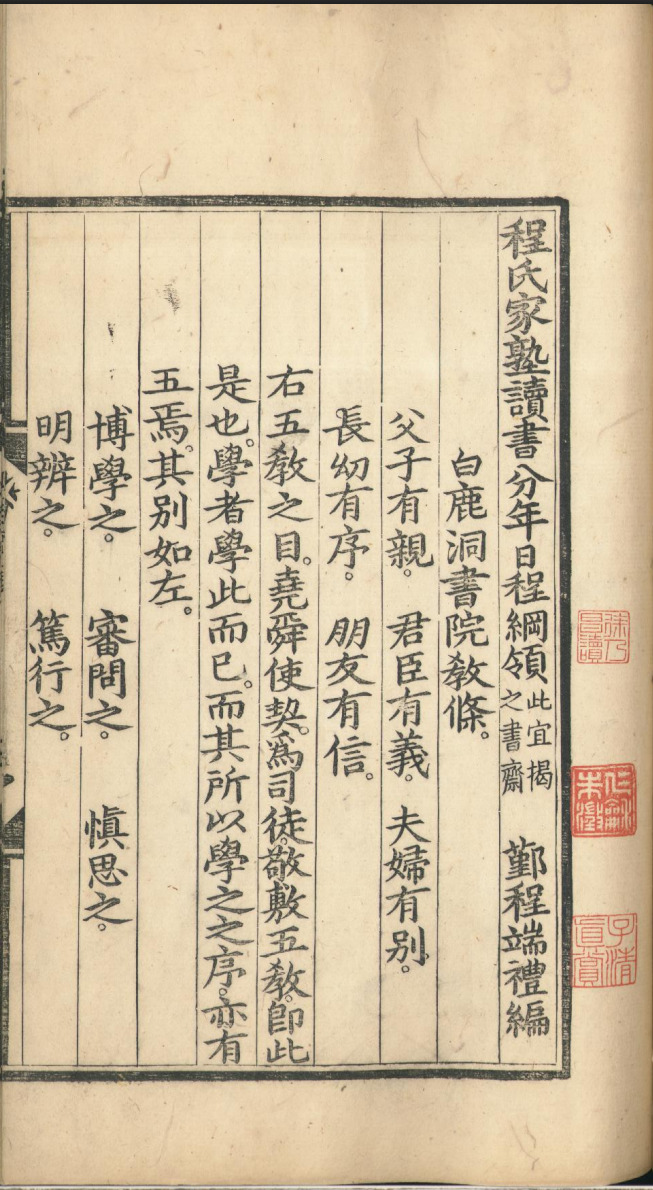 程氏家塾讀書分年日程綱領 此宜揭之書齋 鄞程端禮編
白鹿洞書院教條。
父子有親。 君臣有義。 夫婦有別。
長幼有序。 朋友有信。
右五教之目。堯舜使契。爲司徒。敬敷五教。卽此
是也。學者學此而已。而其所以學之之序。亦有
五焉。其別如左。
博學之。 審問之。 慎思之。
明辨之。 篤行之。
子清真賞